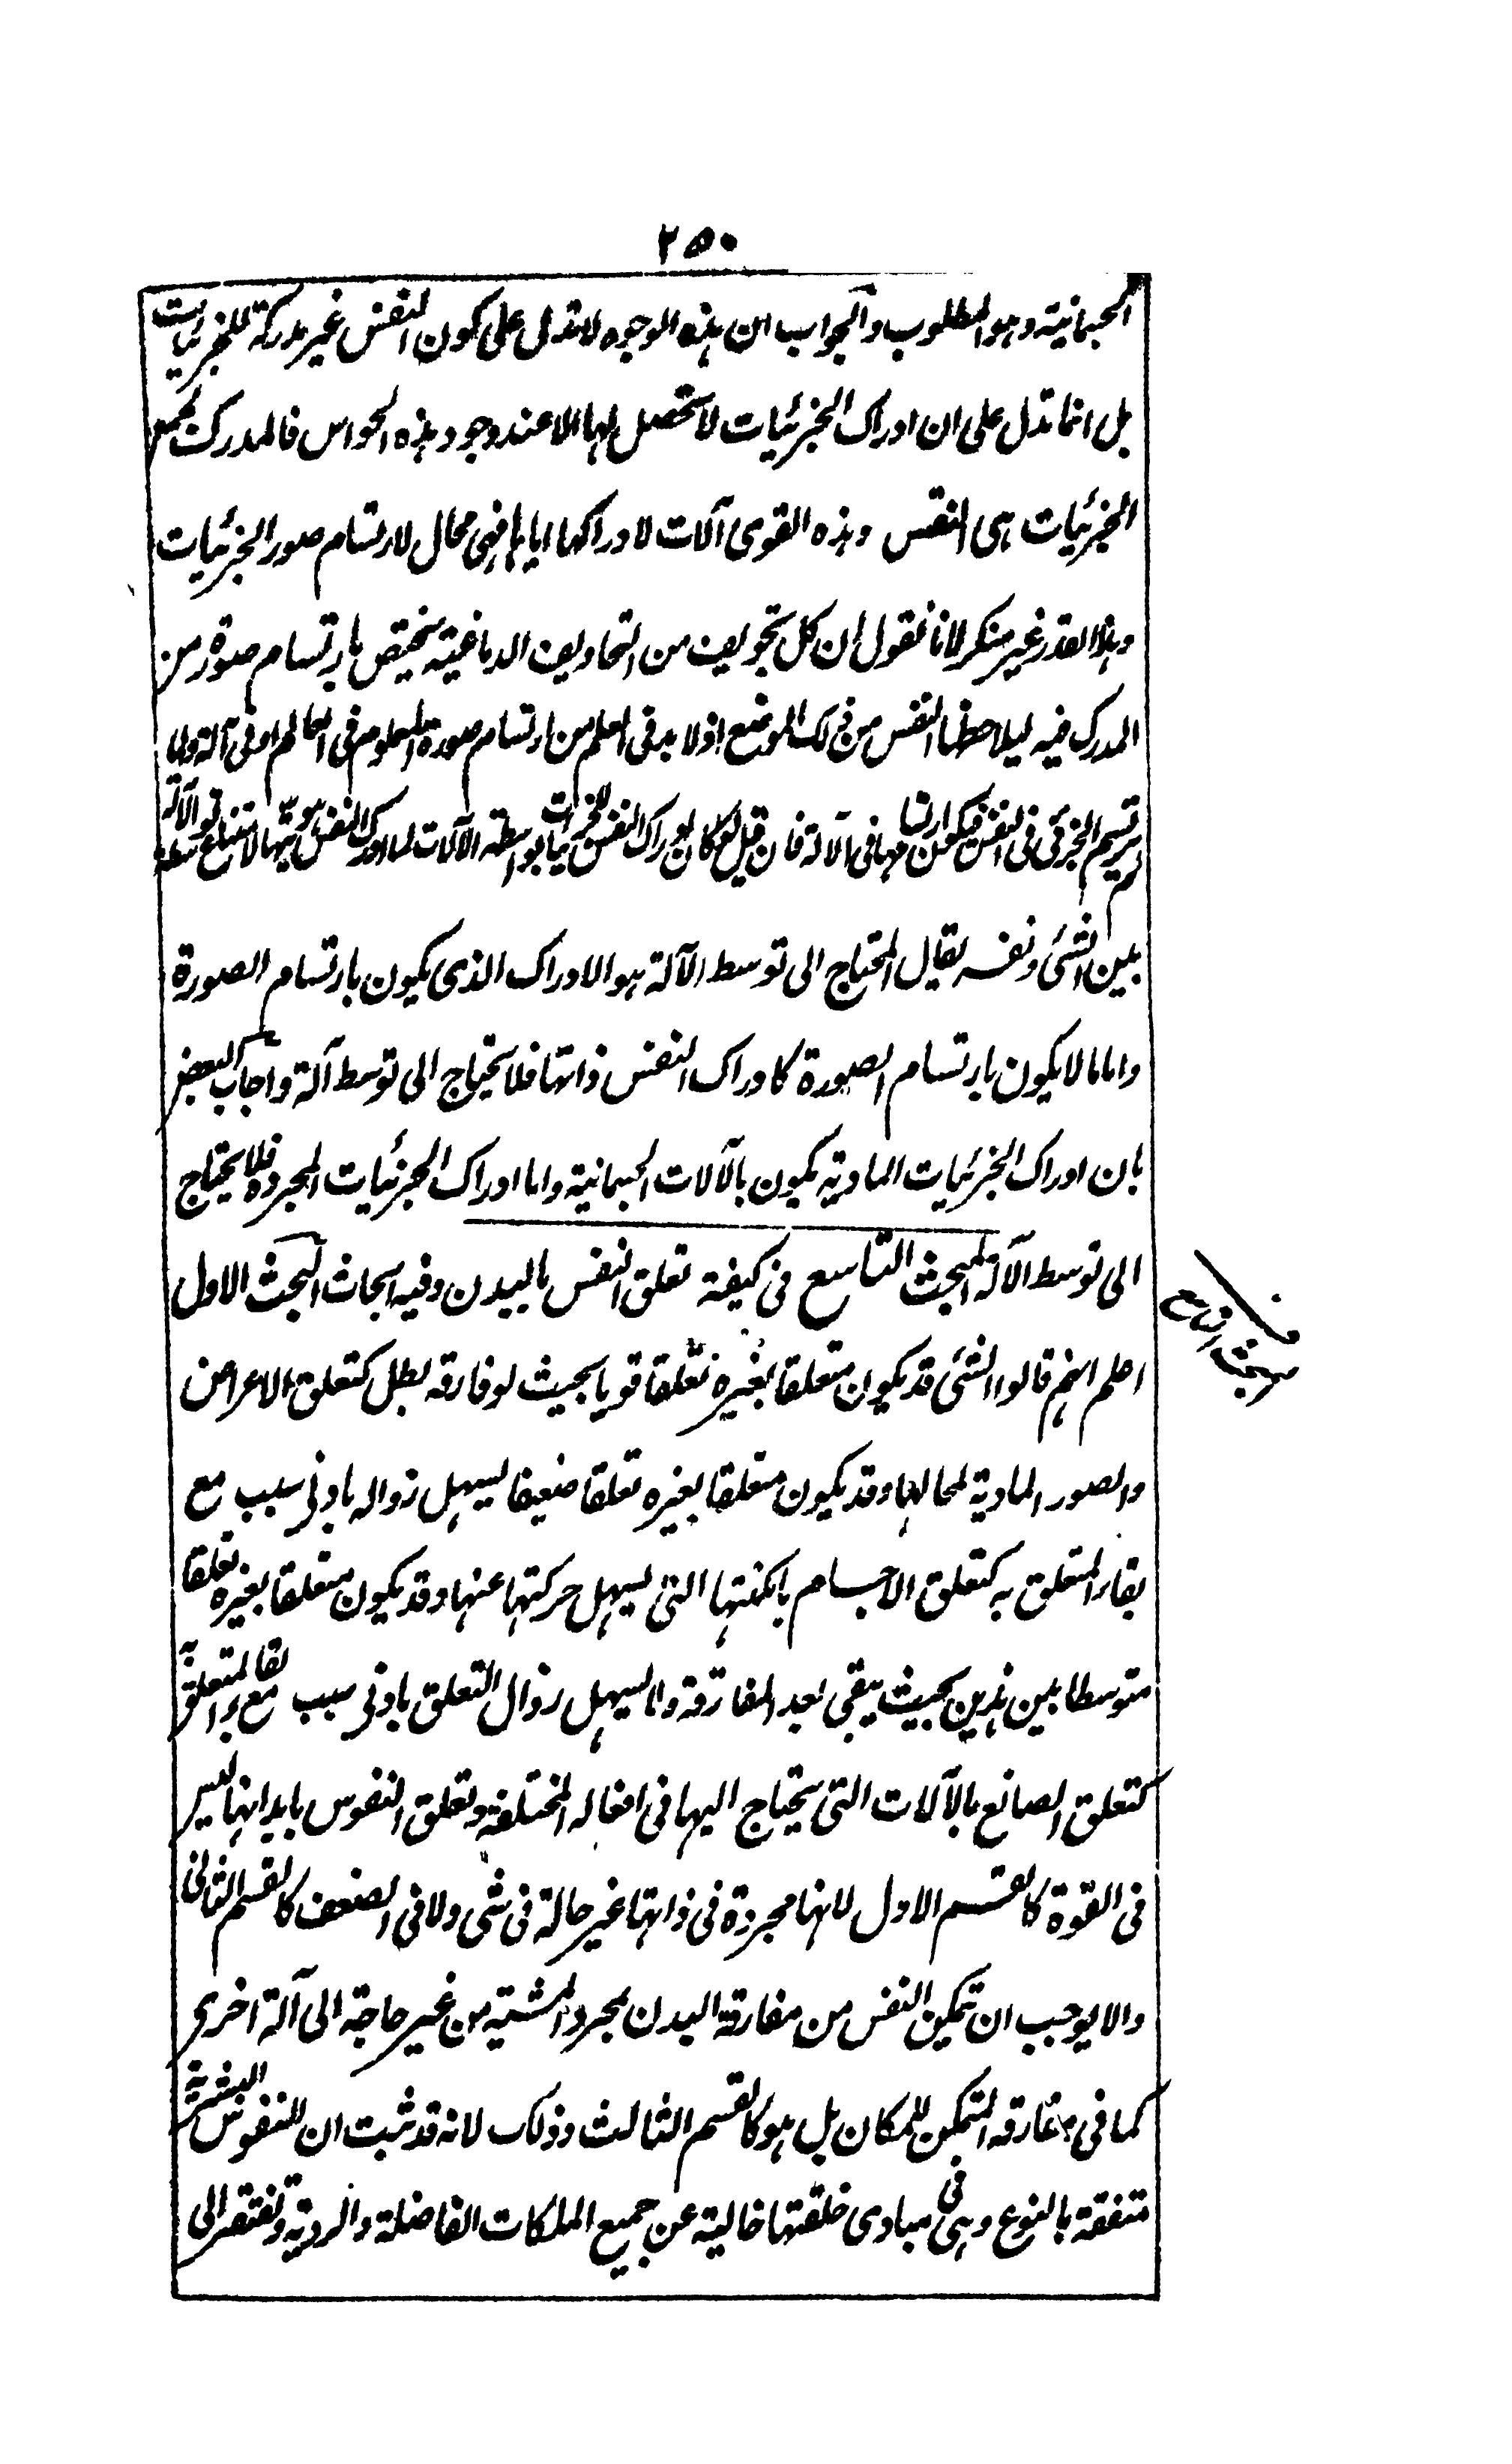 ٢٥٠
الجسمانية وهو المطلوب والجواب ان هذه الوجوه لا تدل على كون النفس غير مدركة للجزئيات
بل انما تدل على ان ادراك الجزئيات لا تحصل لها الا عند وجود هذه الحواس فالمدرك لجميع
الجزئيات هى النفس وهذه القوى آلات لادراكها اياها فهى محال لارتسام صور الجزئيات
وهذا القدر غير منكر لانا نقول ان كل تجويف من التجاويف الدماغية يختص بارتسام صورة من
المدرك فيه ليلاحظها النفس من ذلك الموضع اذ لا بد فى العلم من ارتسام صورة المعلوم فى العالم او فى آلة ولما
لم يرتسم الجزئى فى النفس فيكون ارتسامها فى الآلة فان قيل لو كان ادراك النفس للجزئيات بواسطة الآلات لما ادرك النفس هويتها لامتناع توسط الآلة
بين الشئ ونفسه يقال المحتاج الى توسط الآلة هو الادراك الذى يكون بارتسام الصورة
واما ما لا يكون بارتسام الصورة كادراك النفس ذاتها فلا يحتاج الى توسط آلة واجاب البعض
بان ادراك الجزئيات المادية يكون بالآلات الجسمانية واما ادراك الجزئيات المجردة فلا يحتاج
الى توسط الآلة المبحث التاسع فى كيفة تعلق النفس بالبدن وفيه ابحاث البحث الاول
اعلم انهم قالوا الشئ قد يكون متعلقا بغيره تعلقا قويا بحيث لو فارقه بطل كتعلق الاعراض
والصور المادية لمحالها وقد يكون متعلقا بغيره تعلقا ضعيفا ليسهل زواله بادنى سبب مع
بقاء المتعلق به كتعلق الاجسام بامكنتها التى يسهل حركتها عنها وقد يكون متعلقا بغيره تعلقا
متوسطا بين هذين بحيث يبقى بعد المفارقة ولا يسهل زوال التعلق بادنى سبب مع بقاء المتعلق به
كتعلق الصانع بالآلات التى يحتاج اليها فى افعاله المختلفة وتعلق النفوس بابدانها ليس
فى القوة كالقسم الاول لانها مجردة فى ذاتها غير حالة فى شى ولا فى الضعف كالقسم الثانى
والا يوجب ان تمكن النفس من مفارقة البدن بمجرد المشية من غير حاجة الى آلة اخرى
كما فى مفارقه المتمكن للمكان بل هو كالقسم الثالث وذلك لانه قد ثبت ان النفوس البشرية
متفقة بالنوع وهى فى مبادى خلقتها خالية عن جميع الملكات الفاضلة والردية وتفتقر الى